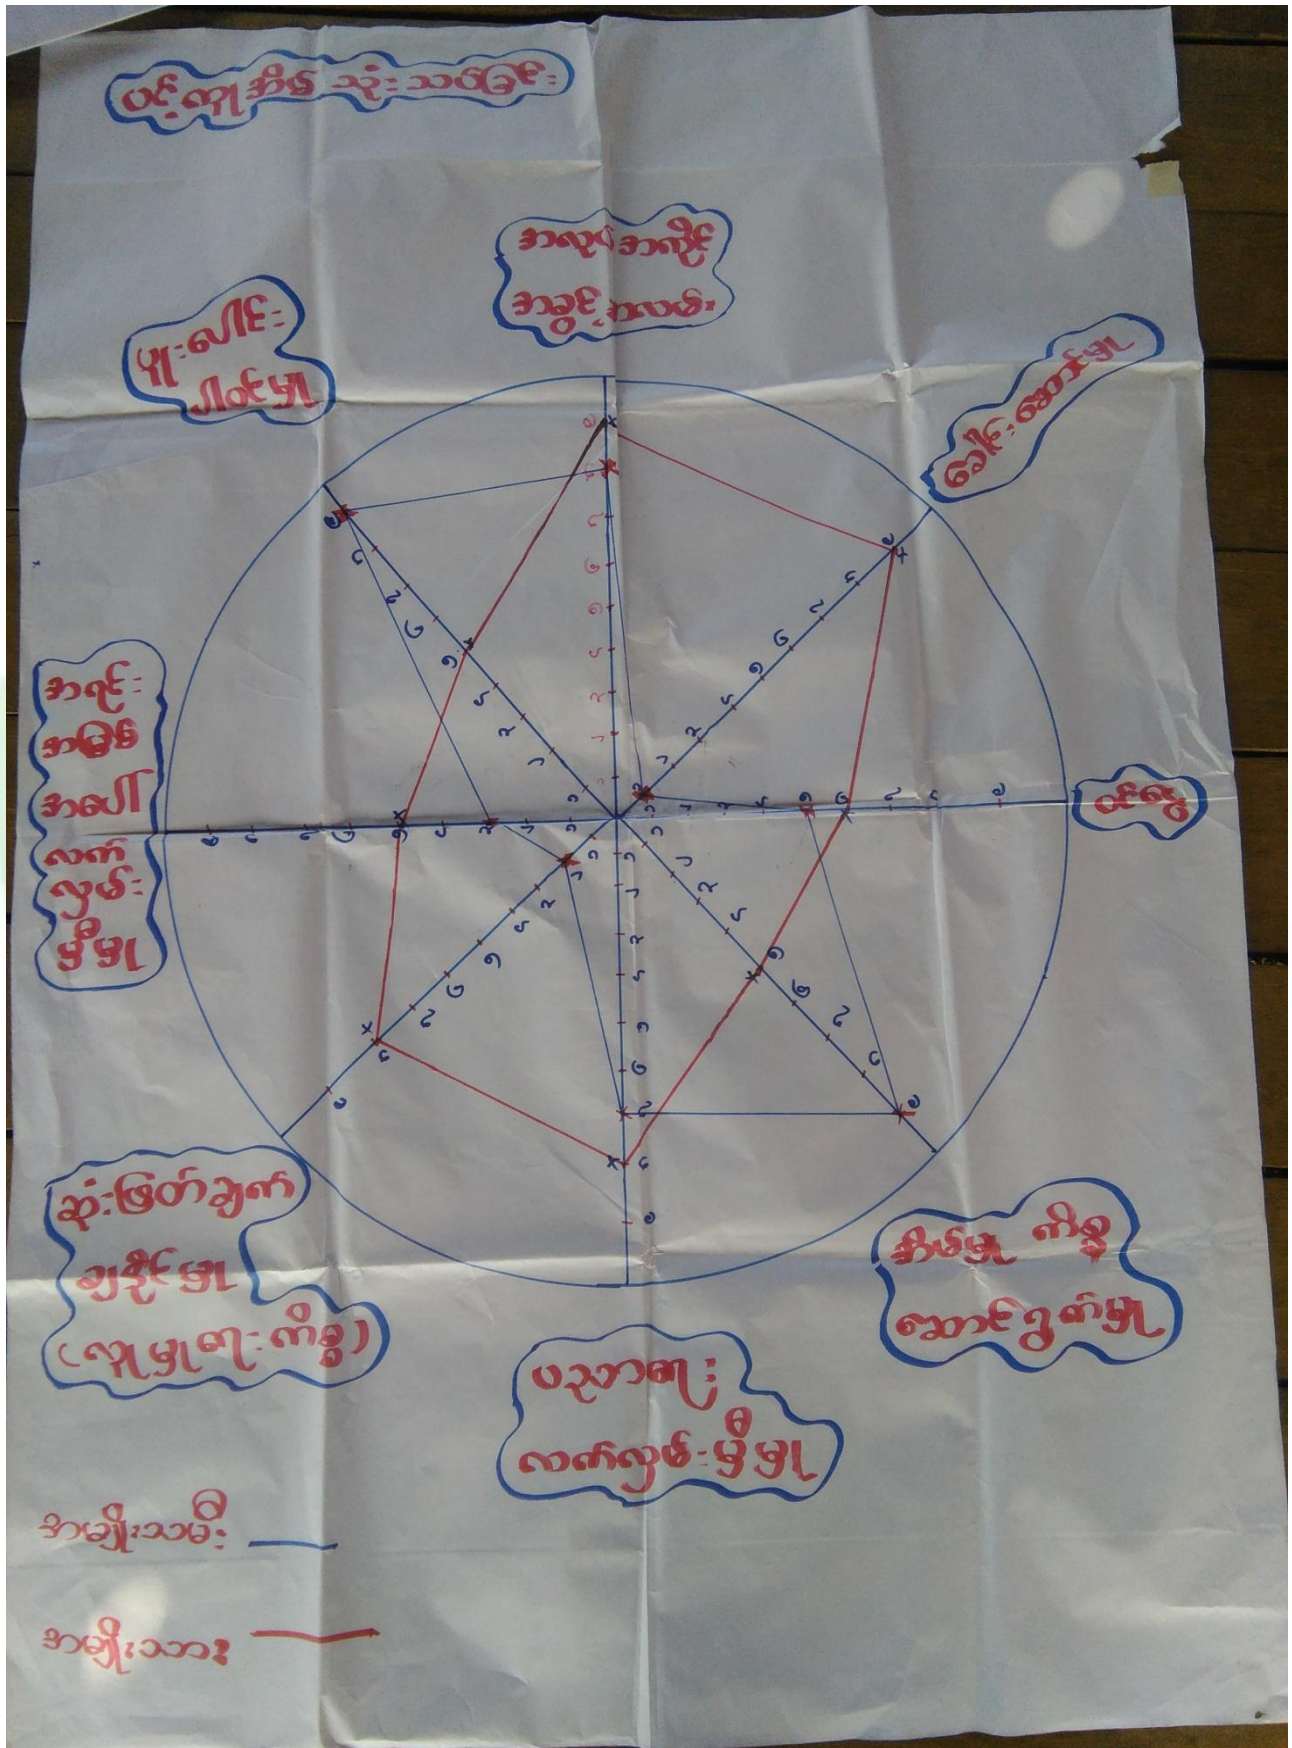 ပင့်ကူအိမ် သုံးသပ်ခြင်း
အလုပ်အကိုင်
အခွင့်အလမ်း
ပူးပေါင်း
ပါဝင်မှု
ခေါင်းဆောင်မှု
အရင်း
အမြစ်
အပေါ်
လက်
လှမ်း
မှီမှု
ဝင်ငွေ
ဆုံးဖြတ်ချက်
ချနိုင်မှု
(လူမှုရေးကိစ္စ)
အိမ်မှုကိစ္စ
ဆောင်ရွက်မှု
ပညာရေး
လက်လှမ်းမှီမှု
အမျိုးသမီး
အမျိုးသား